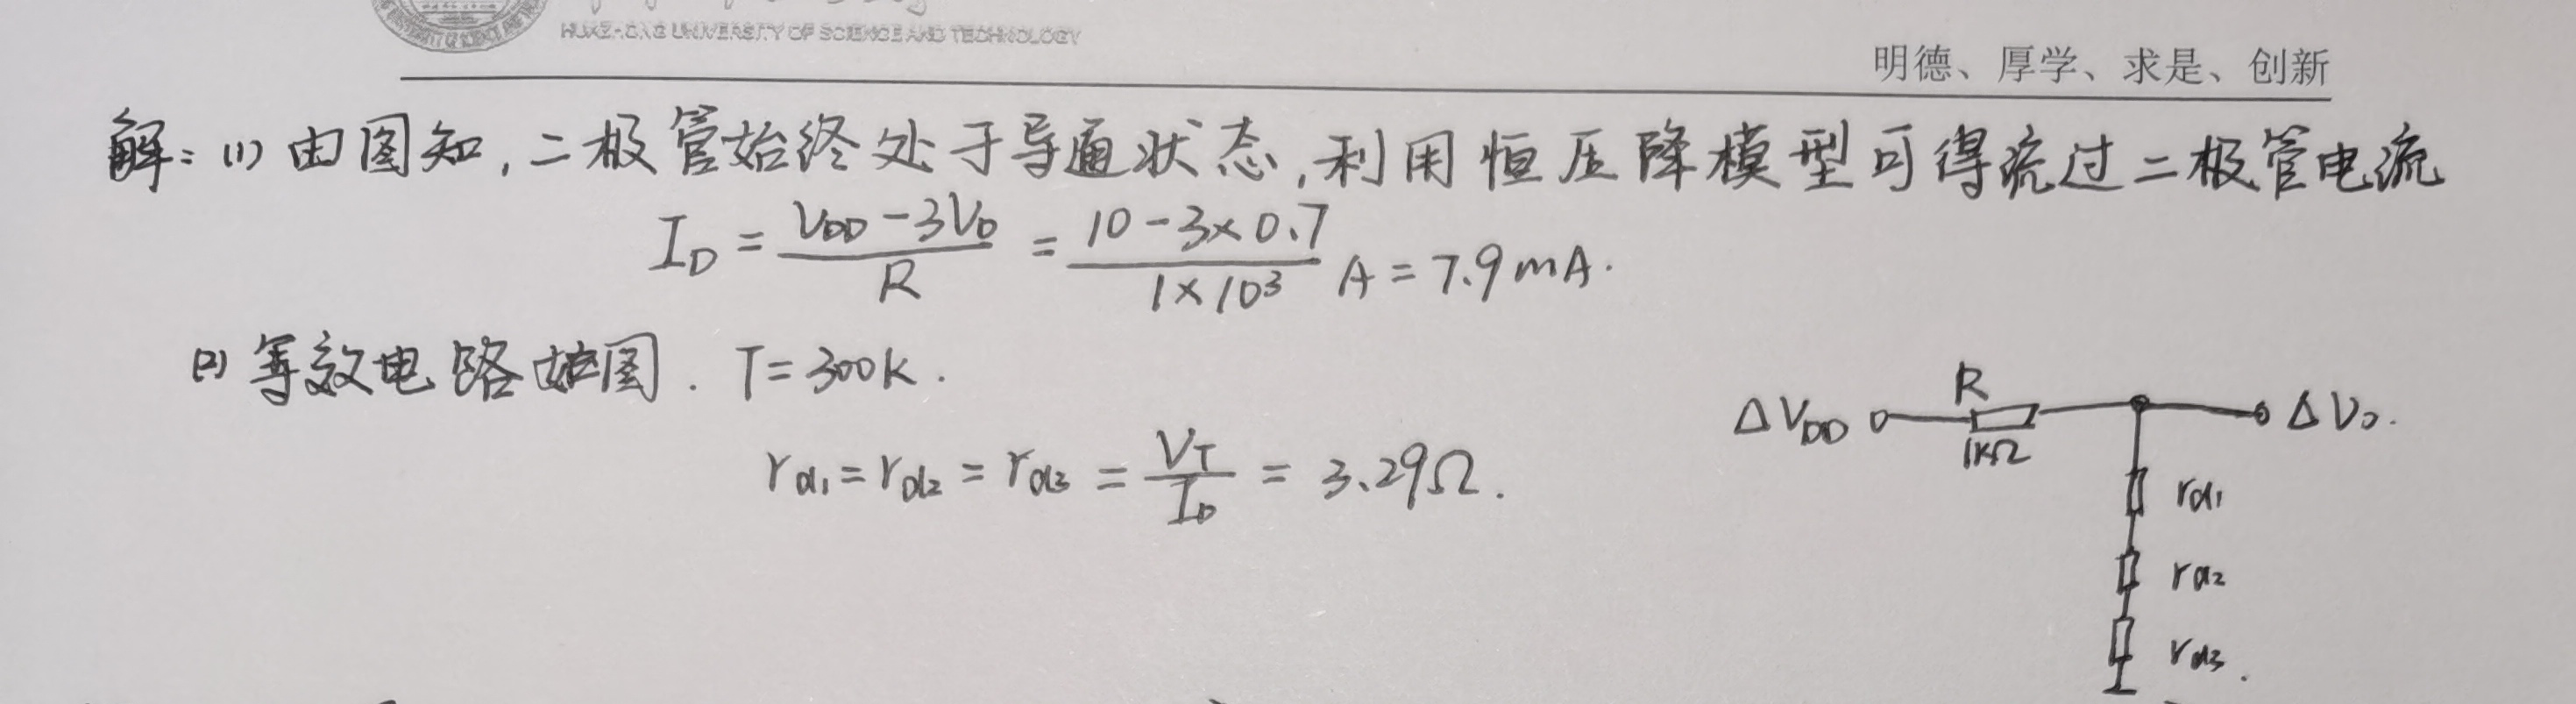 HUAZHONG UNIVERSITY OF SCIENCE AND TECHNOLOGY
明德、厚学、求是、创新
解：(1) 由图知，二极管始终处于导通状态，利用恒压降模型可得流过二极管电流
I_D = (V_DD - 3V_D)/R = (10 - 3×0.7)/(1×10³) A = 7.9mA.
(2) 等效电路如图. T=300K.
r_d1 = r_d2 = r_d3 = V_T/I_D = 3.29Ω.
R
ΔV_DD
1KΩ
ΔV_o.
r_d1
r_d2
r_d3.